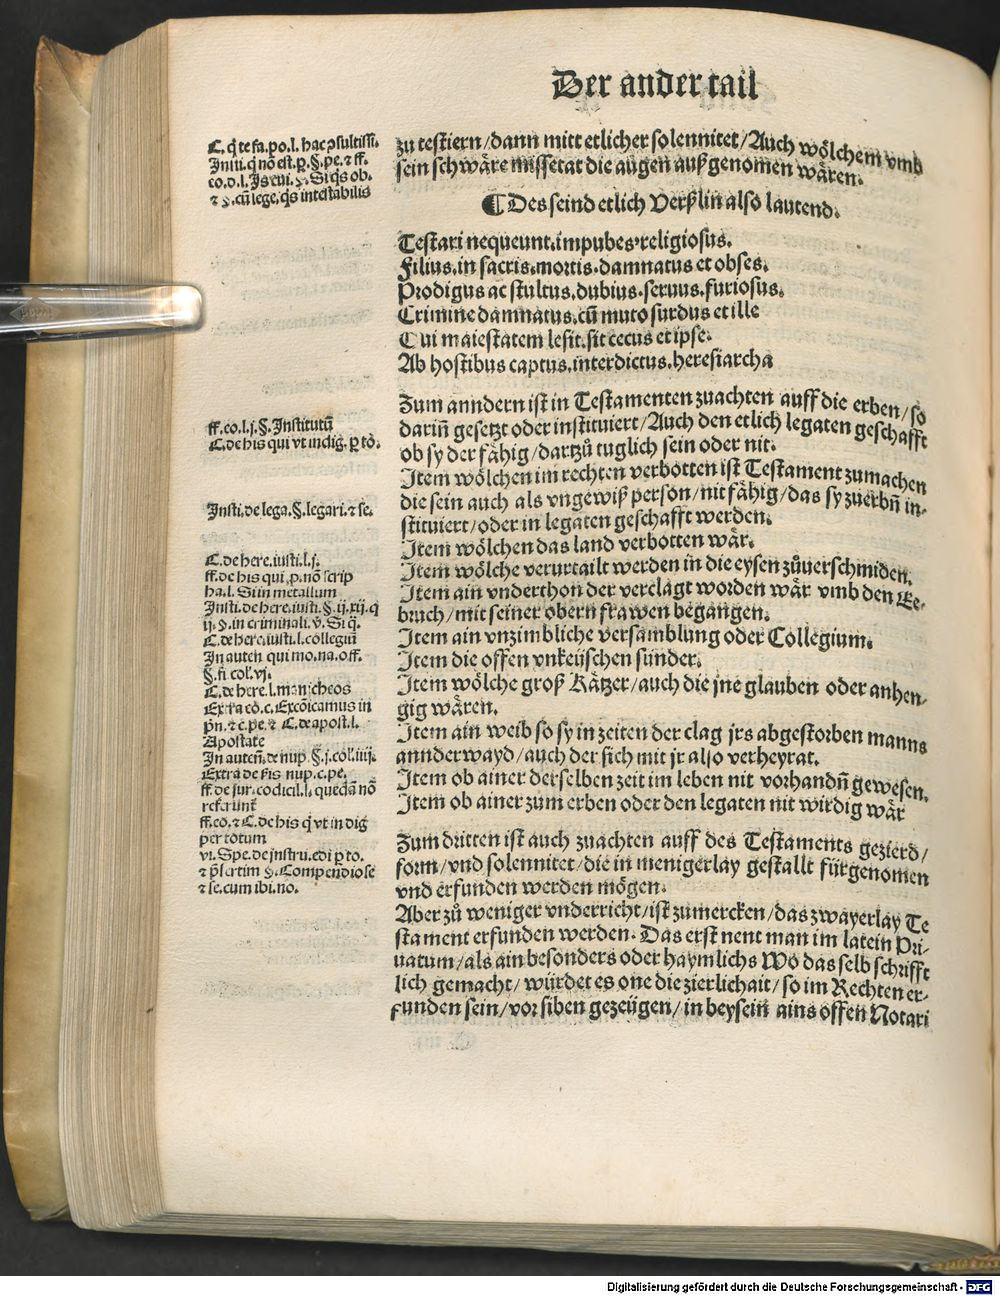 Der ander tail
C. q̃ te fa. po. l. hac ꝓsultiſſi.
Inſti. q̃ nõ eſt. ꝑ. §. pe. ⁊ ff.
eo. o. l. Is cui. §. Si q̃s ob.
⁊ §. cũ lege. q̃s inteſtabilis
zu teſtiern/dann mitt etlicher ſolennitet/Auch woͤlchem vmb
ſein ſchwaͤre miſſetat die augen außgenomen waͤren.
Des ſeind etlich Verßlin alſo lautend.
Teſtari nequeunt.impubes.religioſus.
Filius.in ſacris.mortis.damnatus et obſes.
Prodigus ac ſtultus.dubius.ſeruus.furioſus.
Crimine damnatus.cũ muto ſurdus et ille
Qui maieſtatem leſit.ſit cecus et ipſe.
Ab hoſtibus captus.interdictus.hereſiarcha
Zum anndern iſt in Teſtamenten zuachten auff die erben/ſo
ff. eo. l. j. §. Inſtitutũ
C. de his qui vt indig. ꝑ to.
dariñ geſetzt oder inſtituiert/Auch den etlich legaten geſchafft
ob ſy der faͤhig/dartzuͦ tuglich ſein oder nit.
Item woͤlchen im rechten verbotten iſt Teſtament zumachen
Inſti. de lega. §. legari. ⁊ ſe.
die ſein auch als vngewiß perſon/nit faͤhig/das ſy zuerbñ in-
ſtituiert/oder in legaten geſchafft werden.
Item woͤlchen das land verbotten waͤr.
C. de here. inſti. l. j.
ff. de his qui .p. nõ ſcrip
ha. l. Si in metallum
Item woͤlche verurtailt werden in die eyſen zuͦuerſchmiden.
Item ain vnderthon der verclagt worden waͤr vmb den Ee-
Inſti. de here. inſti. §. ij. xij. q̃
ij. §. in criminali. v̓. Si q̃.
bruch/mit ſeiner obern frawen begangen.
C. de here. inſti. l. collegiũ
Item ain vnzimbliche verſamblung oder Collegium.
In auten̄ qui mo. na. eff.
§. fi col. vj.
Item die offen vnkeüſchen ſünder.
C. de here. l. manicheos
Extra eo. c. Excõicamus in
pñ. ⁊ c. pe. ⁊ C. de apoſt. l.
Apoſtate
Item woͤlche groß Kaͤtzer/auch die jne glauben oder anhen-
gig waͤren.
In auteñ. de nup. §. j. col. iiij.
Extra de ſis nup. c. pe.
Item ain weib ſo ſy in zeiten der clag jrs abgeſtorben manns
annderwayd/auch der ſich mit jr alſo verheyrat.
ff. de iur. codicil. l. quedã nõ
referunt̃
Item ob ainer derſelben zeit im leben nit vorhandñ geweſen.
ff. eo. ⁊ C. de his q̃ vt in dig
per totum
Item ob ainer zum erben oder den legaten nit wirdig waͤr
vi. Spe. de inſtru. edi ꝑ to.
⁊ p̃ſertim §. Compendioſe
⁊ ſe. cum ibi. no.
Zum dritten iſt auch zuachten auff des Teſtaments gezierd/
form/vnd ſolennitet/die in menigerlay geſtallt fürgenomen
vnd erfunden werden moͤgen.
Aber zuͦ weniger vnderricht/iſt zumercken/das zwayerlay Te
ſtament erfunden werden. Das erſt nent man im latein Pri-
uatum/als ain beſonders oder haymlichs Wo das ſelb ſchrifft
lich gemacht/würdet es one die zierlichait/ſo im Rechten er-
funden ſein/vor ſiben gezeügen/in beyſein ains offen Notari
Digitalisierung gefördert durch die Deutsche Forschungsgemeinschaft - DFG